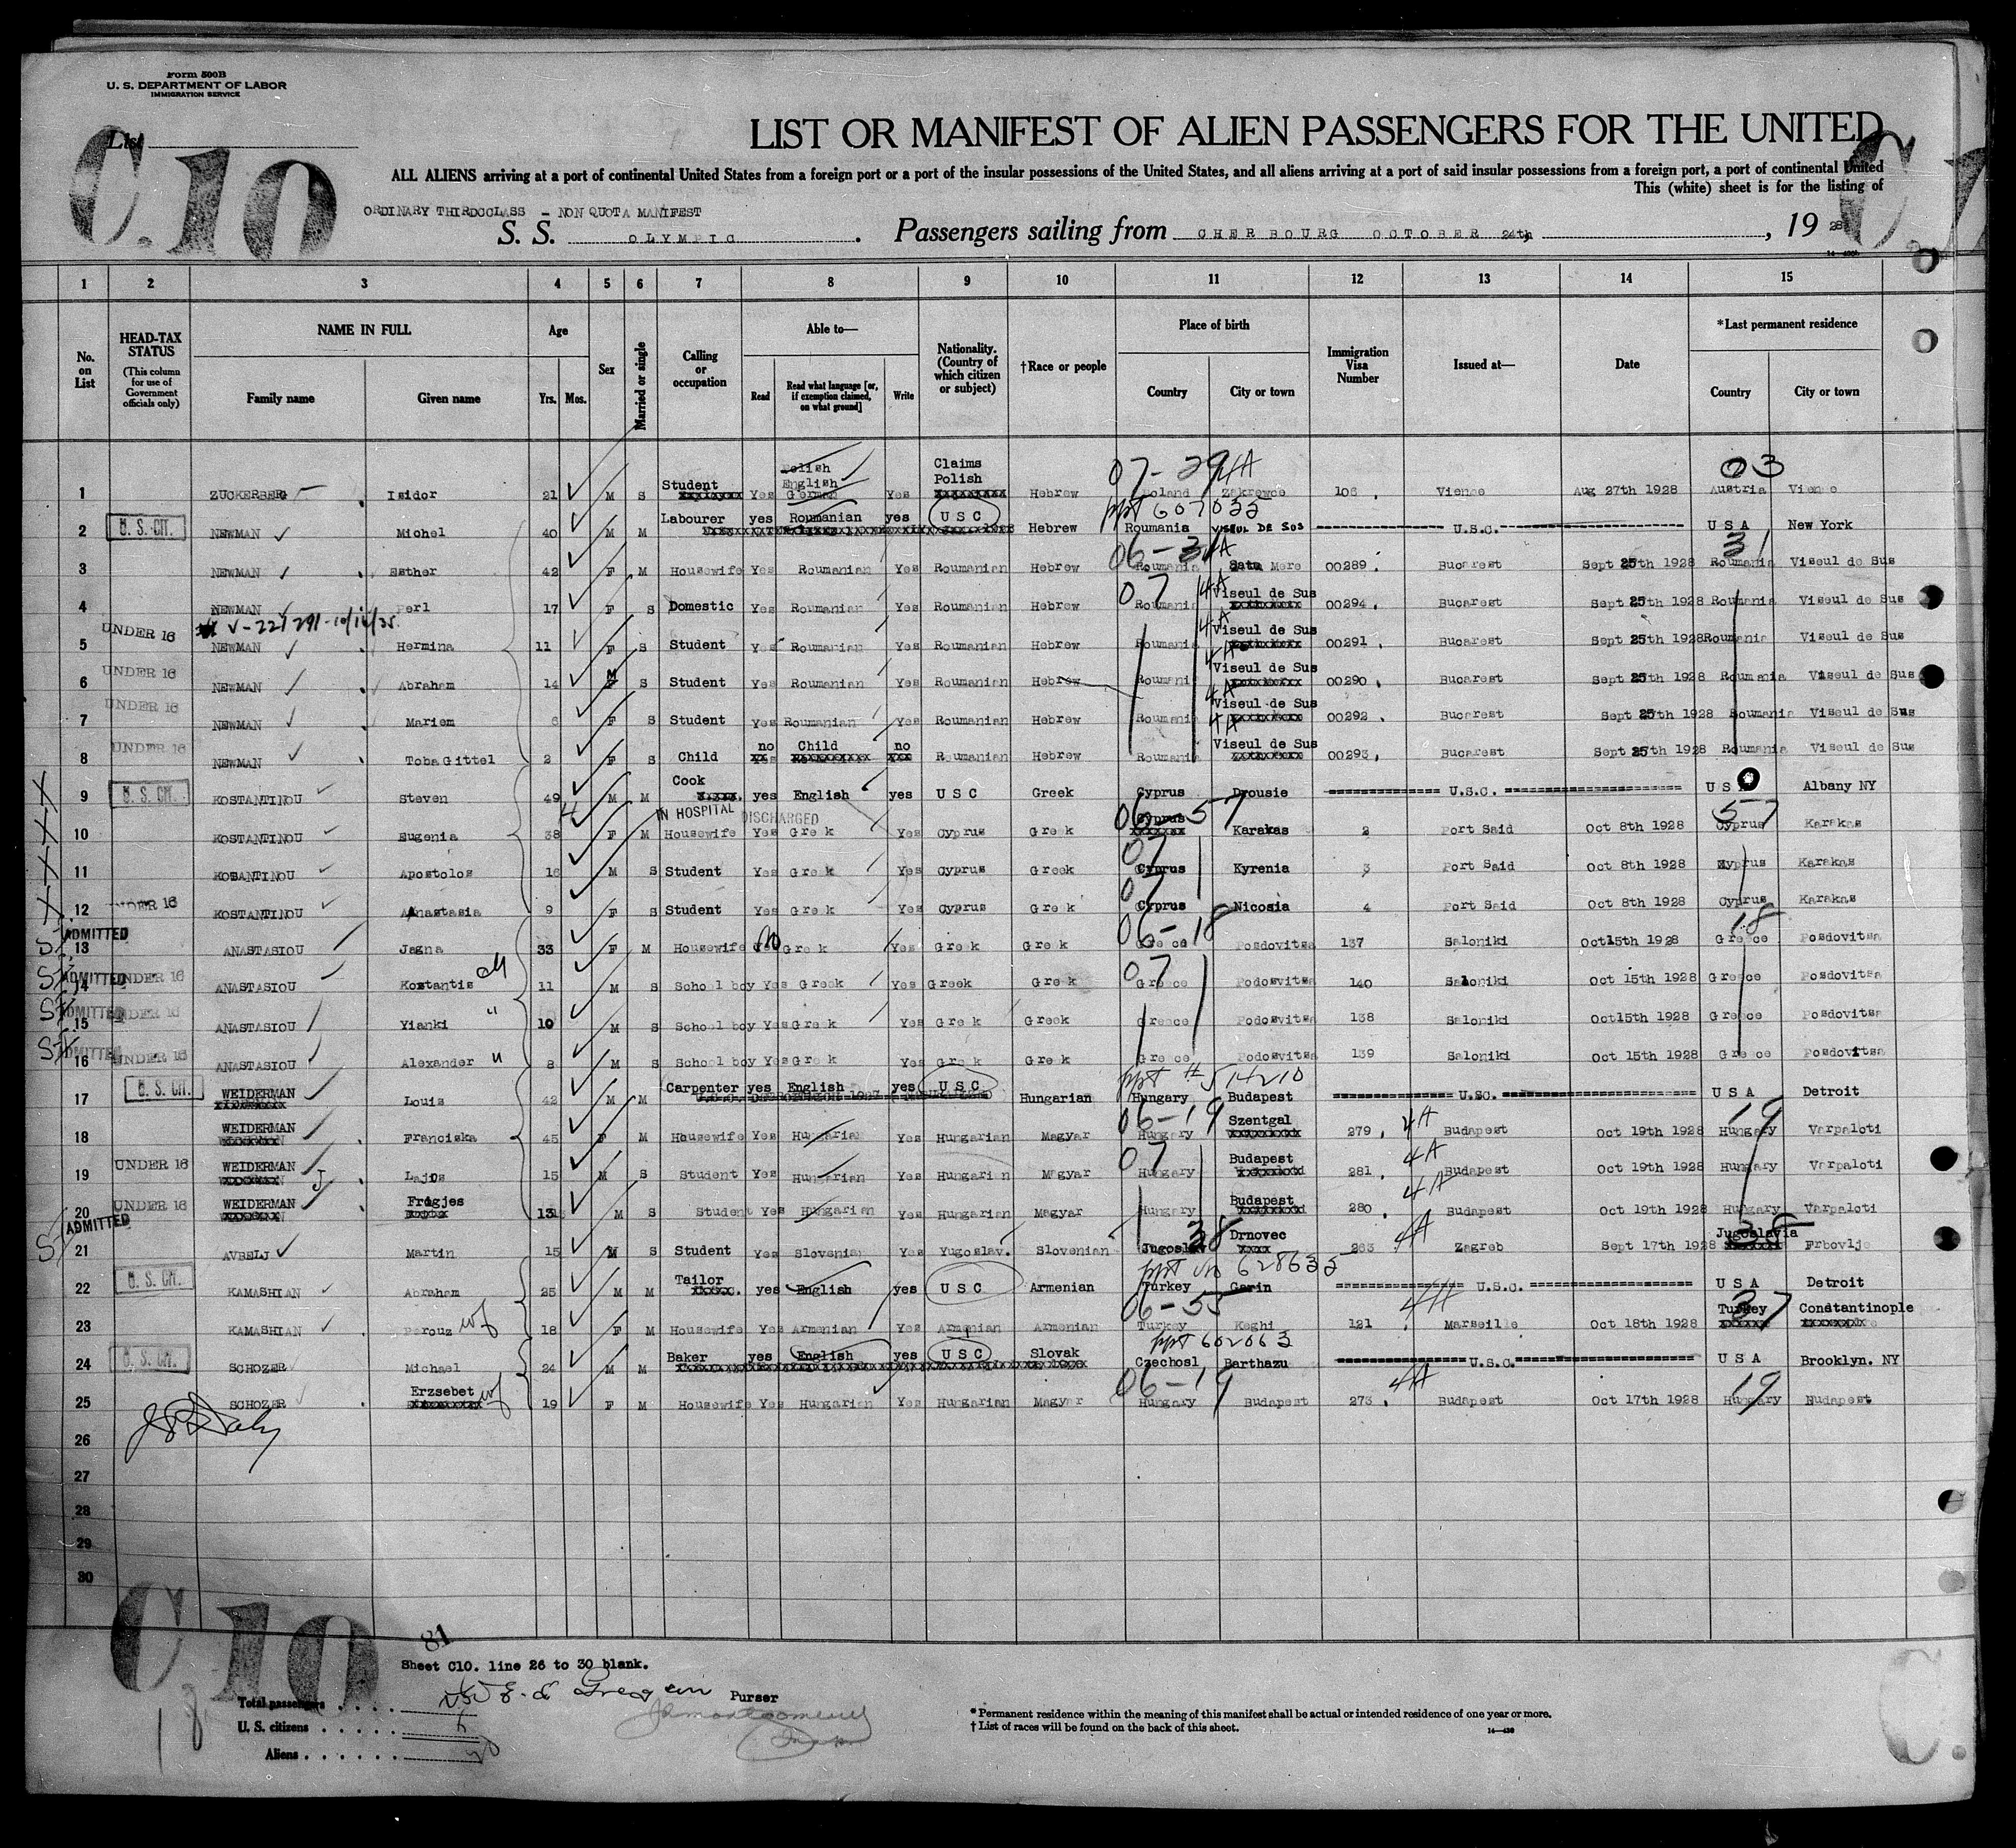 Form 500B
U. S. DEPARTMENT OF LABOR
IMMIGRATION SERVICE
List
C.10
LIST OR MANIFEST OF ALIEN PASSENGERS FOR THE UNITED
ALL ALIENS arriving at a port of continental United States from a foreign port or a port of the insular possessions of the United States, and all aliens arriving at a port of said insular possessions from a foreign port, a port of continental United
This (white) sheet is for the listing of
ORDINARY THIRDCCLASS - NON QUOTA MANIFEST
S. S. OLYMPIC. Passengers sailing from CHERBOURG OCTOBER 24th, 1928
1 2 3 4 5 6 7 8 9 10 11 12 13 14 15
No. on List
HEAD-TAX STATUS (This column for use of Government officials only)
NAME IN FULL Family name Given name
Age Yrs. Mos.
Sex
Married or single
Calling or occupation
Able to— Read Read what language [or, if exemption claimed, on what ground] Write
Nationality. (Country of which citizen or subject)
†Race or people
Place of birth Country City or town
Immigration Visa Number
Issued at—
Date
*Last permanent residence Country City or town
Polish Claims 07-29 4A 03
Student English Polish
1 ZUCKERBERG Isidor 21 M S Yes German Yes Hebrew Poland Zakrewce 106 Vienne Aug 27th 1928 Austria Vienne
ppt 607032
2 U. S. CIT. NEWMAN Michel 40 M M Labourer yes Roumanian yes U S C Hebrew Roumania VISEUL DE SUS U.S.C. U S A New York
06-31 4A 31
3 NEWMAN Esther 42 F M Housewife Yes Roumanian Yes Roumanian Hebrew Roumania Satu Mere 00289 Bucarest Sept 25th 1928 Roumania Viseul de Sus
07 4A
4 NEWMAN Perl 17 F S Domestic Yes Roumanian Yes Roumanian Hebrew Roumania Viseul de Sus 00294 Bucarest Sept 25th 1928 Roumania Viseul de Sus
V-221291-10/16/35 4A
5 UNDER 16 NEWMAN Hermina 11 F S Student Yes Roumanian Yes Roumanian Hebrew Roumania Viseul de Sus 00291 Bucarest Sept 25th 1928 Roumania Viseul de Sus
4A
6 UNDER 16 NEWMAN Abraham 14 M S Student Yes Roumanian Yes Roumanian Hebrew Roumani Viseul de Sus 00290 Bucarest Sept 25th 1928 Roumania Viseul de Sus
4A
7 UNDER 16 NEWMAN Mariem 6 F S Student Yes Roumanian Yes Roumanian Hebrew Roumania Viseul de Sus 00292 Bucarest Sept 25th 1928 Roumania Viseul de Sus
4A
8 UNDER 16 NEWMAN Toba Gittel 2 F S Child no Child no Roumanian Hebrew Roumania Viseul de Sus 00293 Bucarest Sept 25th 1928 Roumania Viseul de Sus
X 9 U. S. CIT. KOSTANTINOU Steven 49 M M Cook yes English yes U S C Greek Cyprus Drousie U.S.C. U S A Albany NY
IN HOSPITAL DISCHARGED 06 57 57
X 10 KOSTANTINOU Eugenia 38 F M Housewife Yes Gre k Yes Cyprus Greek Cyprus Karakas 2 Port Said Oct 8th 1928 Cyprus Karakas
07
X 11 KOSANTINOU Apostolos 16 M S Student Yes Gre k Yes Cyprus Greek Cyprus Kyrenia 3 Port Said Oct 8th 1928 Cyprus Karakas
07
X 12 UNDER 16 KOSTANTINOU Anastasia 9 F S Student Yes Gre k Yes Cyprus Gre k Cyprus Nicosia 4 Port Said Oct 8th 1928 Cyprus Karakas
ADMITTED 06-18 18
SI 13 ANASTASIOU Jagna 33 F M Housewife no Gre k Yes Gre k Gre k Greece Posdovitsa 137 Saloniki Oct15th 1928 Greece Posdovitsa
07
SI 14 ADMITTED UNDER 16 ANASTASIOU Kostantis 11 M S School boy Yes Greek Yes Greek Gre k Greece Podosvitsa 140 Saloniki Oct 15th 1928 Greece Posdovitsa
SI 15 ADMITTED UNDER 16 ANASTASIOU Yianki " 10 M S School boy Yes Gre k Yes Gre k Greek Greece Podosvitsa 138 Saloniki Oct15th 1928 Greece Posdovitsa
SI 16 ADMITTED UNDER 16 ANASTASIOU Alexander " 8 M S School boy Yes Gre k Yes Gre k Gre k Greece Podosvitsa 139 Saloniki Oct 15th 1928 Greece Posdovitsa
ppt # 514210
17 U. S. CIT. WEIDERMAN Louis 42 M M Carpenter yes English yes U S C Hungarian Hungary Budapest U.SC. U S A Detroit
06-19 19
18 WEIDERMAN Franciska 45 F M Housewife Yes Hungarian Yes Hungarian Magyar Hungary Szentgal 279 4A Budapest Oct 19th 1928 Hungary Varpaloti
07 4A
19 UNDER 16 WEIDERMAN Lajos 15 M S Student Yes Hungarian Yes Hungarian Magyar Hungary Budapest 281 Budapest Oct 19th 1928 Hungary Varpaloti
4A
20 UNDER 16 WEIDERMAN Frigjes 13 M S Student Yes Hungarian Yes Hungarian Magyar Hungary Budapest 280 Budapest Oct 19th 1928 Hungary Varpaloti
ADMITTED 38 4A 38
SI 21 AVBELJ Martin 15 M S Student Yes Slovenian Yes Yugoslav. Slovenian Jugoslav Drnovec 263 Zagreb Sept 17th 1928 Jugoslavia Frbovlje
ppt no 628635
22 U. S. CIT. KAMASHIAN Abraham 25 M M Tailor yes English yes U S C Armenian Turkey Garin U.S.C. U S A Detroit
06-55 4A 37
23 KAMASHIAN Perouz wf 18 F M Housewife Yes Armenian Yes Armenian Armenian Turkey Keghi 121 Marseille Oct 18th 1928 Turkey Constantinople
ppt 602063
24 U. S. CIT. SCHOZER Michael 24 M M Baker yes English yes U S C Slovak Czechosl Barthazu U.S.C. U S A Brooklyn. NY
06-19 4A 19
25 SCHOZER Erzsebet wf 19 F M Housewife Yes Hungarian Yes Hungarian Magyar Hungary Budapest 273 Budapest Oct 17th 1928 Hungary Budapest
26
27
28
29
30
C 10
81
Sheet C10. line 26 to 30 blank.
Total passengers
Purser
U. S. citizens
Aliens
*Permanent residence within the meaning of this manifest shall be actual or intended residence of one year or more.
†List of races will be found on the back of this sheet.